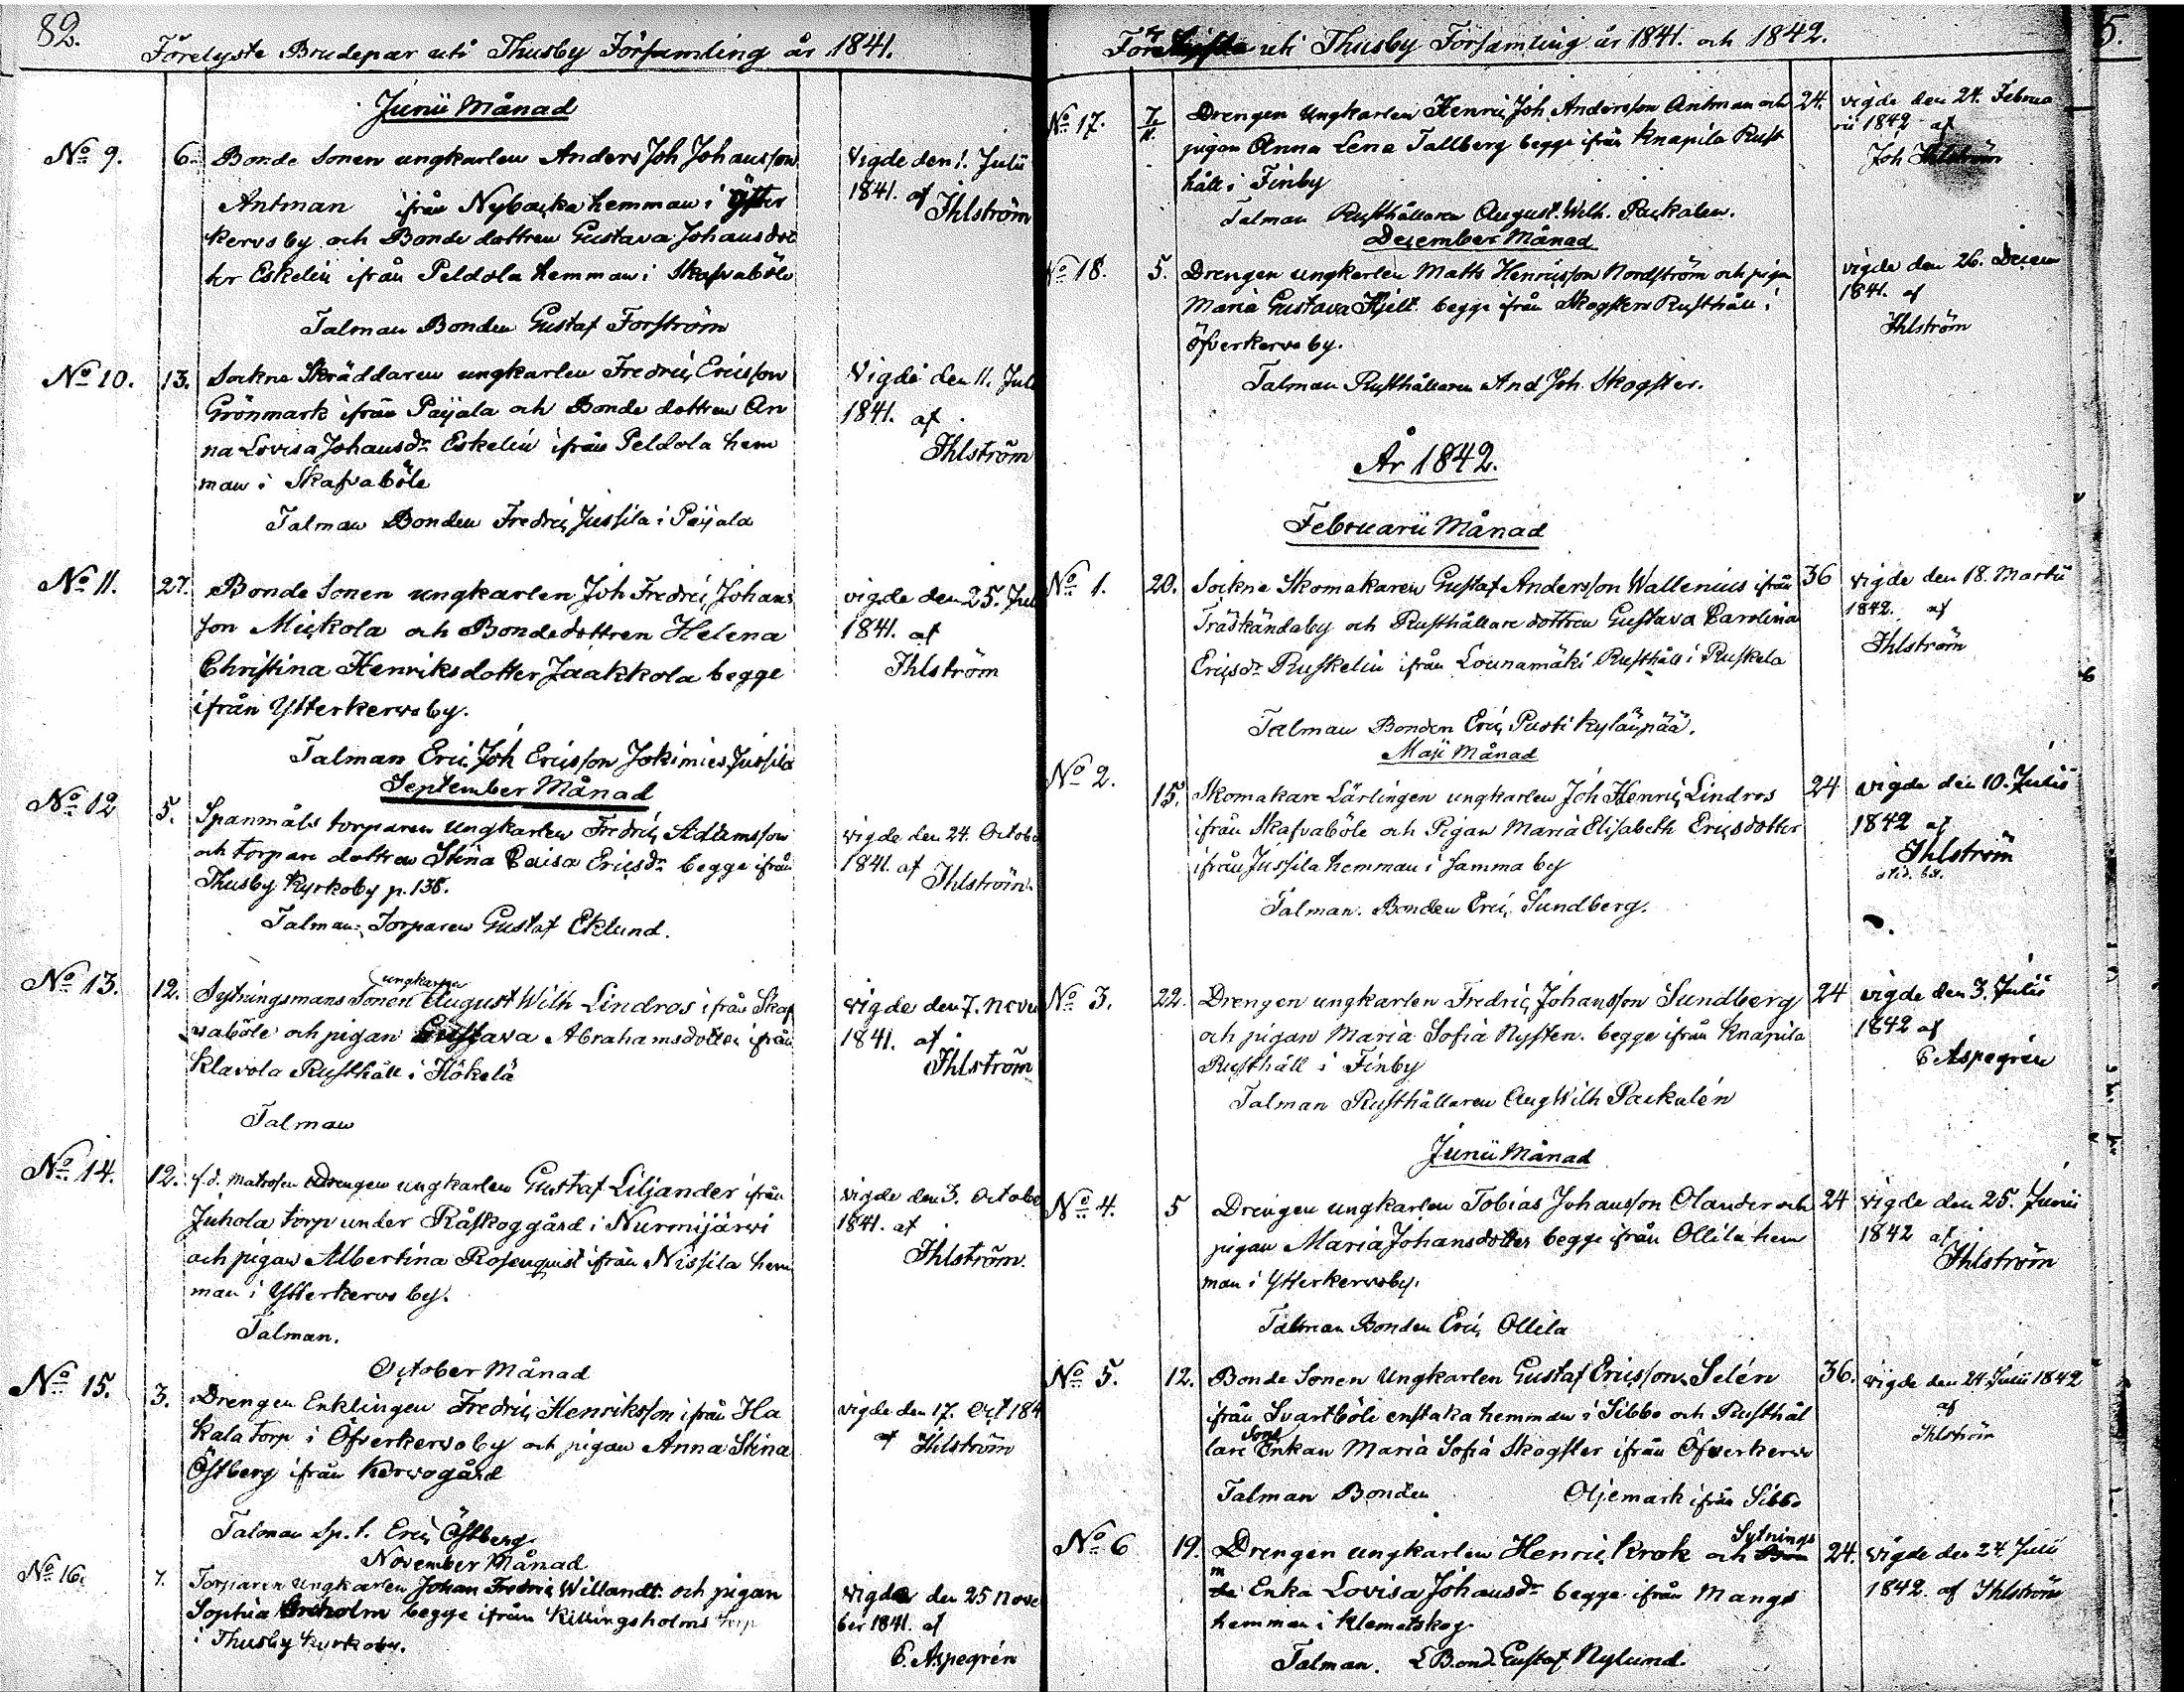 82.
Förelyste Brudepar uti Thusby Församling år 1841.
Junii Månad
No 9.
6.
Bonde Sonen ungkarlen Anders Joh Johansson
Antman ifrån Nybacka hemman i Ytter
kervoby och Bonde dottren Gustava Johansdot
ter Eskelin ifrån Peldola hemman i Skafvaböle
Talman Bonden Gustaf Forström
Vigde den 1. Julii
1841. af
Ihlström
No 10.
13.
Sockne Skräddaren ungkarlen Fredric Ericsson
Grönmark ifrån Paijala och Bonde dottren An
na Lovisa Johansdr Eskelin ifrån Peldola hem
man i Skafvaböle
Talman Bonden Fredric Jussila i Paijala
Vigde den 11. Jul
1841. af
Ihlström
No 11.
27.
Bonde Sonen ungkarlen Joh Fredric Johans
son Mickola och Bondedottren Helena
Christina Henriksdotter Jaakkola begge
ifrån Ytterkervoby.
Talman Eric Joh Ericsson Jokimies Jussila
vigde den 25. Jul
1841. af
Ihlström
September Månad
No 12
5.
Spanmåls torparen Ungkarlen Fredric Adamsson
och torpare dottren Stina Caisa Ericsdr begge ifrån
Thusby Kyrkoby p. 138.
Talman: Torparen Gustaf Eklund.
vigde den 24. Octob
1841. af
Ihlström.
No 13.
12.
ungkarlen
Sytningsmans Sonen August Wilh Lindros ifrån Skaf
vaböle och pigan Gustava Abrahamsdotter ifrån
Klavola Rusthåll i Hökelä
Talman
vigde den 7. Nove
1841. af
Ihlström
No 14.
12.
f.d. Matrosen Drengen ungkarlen Gustaf Liljander ifrån
Juhola torp under Råskog gård i Nurmijärvi
och pigan Albertina Rosenquist ifrån Nissila hem
man i Ytterkervo by.
Talman.
vigde den 3. Octobe
1841. af
Ihlström.
October Månad
No 15.
3.
Drengen Enklingen Fredric Henriksson ifrån Ha
kala torp i Öfverkervoby och pigan Anna Stina
Östberg ifrån Kervogård
Talman Sp. t. Eric Östberg
vigde den 17. Oct 184
af Ihlström
November Månad
No 16.
7.
Torparen Ungkarlen Johan Fredric Willandt och pigan
Sophia begge ifrån Killingsholms torp
i Thusby kyrkoby.
vigde den 25 Nove
ber 1841. af
C. Aspegrén
5.
uti Thusby Församling år 1841. och 1842.
No 17.
7.
11.
Drengen Ungkarlen Henric Joh Andersson Antman och
pigan Anna Lena Tallberg begge ifrån Knapila Rust
håll i Finby
Talman Rusthållaren August. Wilh. Packalen.
24.
vigde den 24. Februa
rii 1842 af
Joh Ihlström
December Månad
No 18.
5.
Drengen ungkarlen Matts Henricsson Nordström och pigan
Maria Gustava Hjelt begge ifrån Skogsters Rusthåll i
Öfverkervoby.
Talman Rusthållaren And Joh. Skogster.
vigde den 26. Decem
1841. af
Ihlström
År 1842.
Februarii Månad
No 1.
20.
Sockne Skomakaren Gustaf Andersson Wallenius ifrån
Träskändaby och Rusthållare dottren Gustava Carolina
Ericsdr Ruskelin ifrån Lounamäki Rusthåll i Ruskela
Talman Bonden Eric Pusti Kyläupää.
36
vigde den 18. Martii
1842. af
Ihlström
Maji Månad
No 2.
15.
Skomakare Lärlingen ungkarlen Joh Henric Lindros
ifrån Skafvaböle och Pigan Maria Elisabeth Ericsdotter
ifrån Jussila hemman i samma by
Talman. Bonden Eric Sundberg.
24
vigde den 10. Julii
1842 af
Ihlström
No 3.
22.
Drengen ungkarlen Fredric Johansson Sundberg
och pigan Maria Sofia Nysten. begge ifrån Knapila
Rusthåll i Finby
Talman Rusthållaren Aug Wilh Packalén
24
vigde den 3. Julii
1842 af
C Aspegrén
Junii Månad
No 4.
5
Drengen ungkarlen Tobias Johansson Olander och
pigan Maria Johansdotter begge ifrån Ollila hem
man i Ytterkervoby.
Talman Bonden Eric Ollila
24
vigde den 25. Junii
1842 af
Ihlström
No 5.
12.
Bonde Sonen Ungkarlen Gustaf Ericsson Selén
ifrån Svartböle enstaka hemman i Sibbo och Rusthål
Sons
lare Enkan Maria Sofia Skogster ifrån Öfverkervo
Talman Bonden Oljemark ifrån Sibbo
36.
vigde den 24. Julii 1842
af
Ihlström
No 6
19.
Sytnings
Drengen ungkarlen Henric Krok och
m Enka Lovisa Johansdr begge ifrån Mangs
hemman i Klemetskog.
Talman. Bond. Gustaf Nylund.
24.
vigde den 24 Julii
1842. af Ihlström